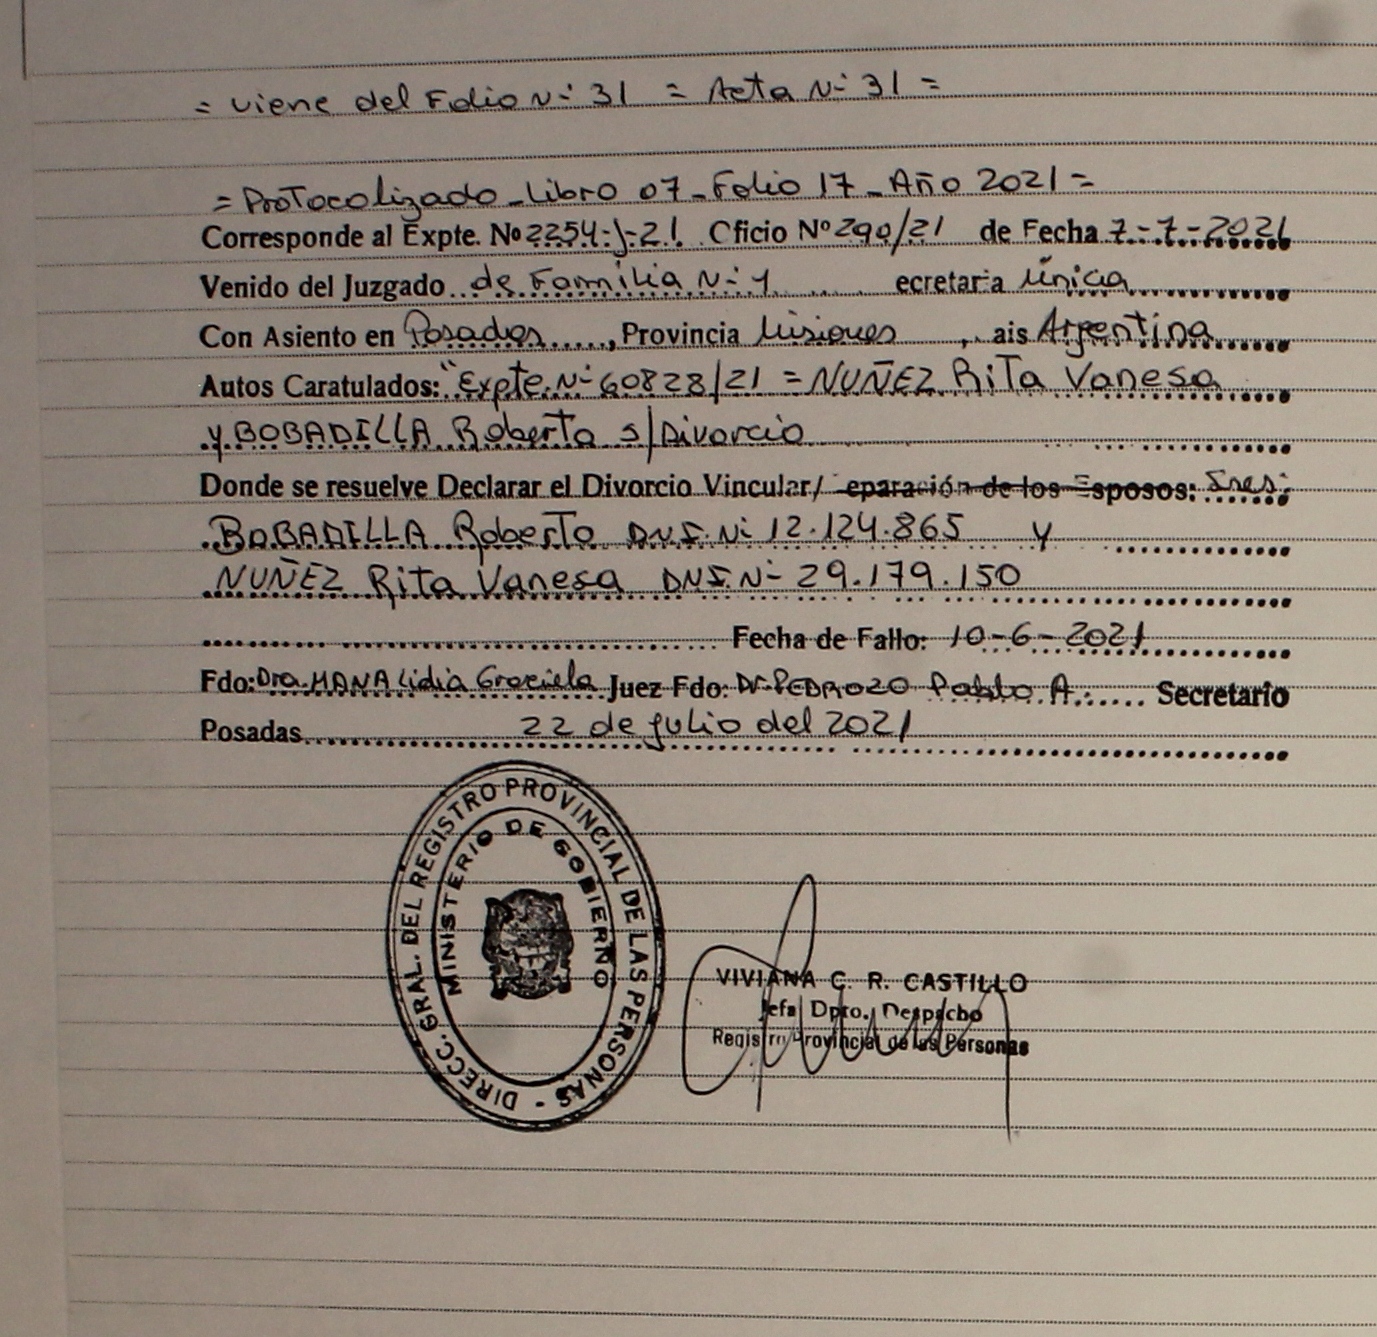 = Viene del Folio Nº 31 = Acta Nº 31 =
= Protocolizado - Libro 07 - Folio 17 - Año 2021 =
Corresponde al Expte. Nº 2254-J-21. Oficio Nº 290/21 de Fecha 7-7-2021
Venido del Juzgado de Familia Nº 1 ecretaria Única
Con Asiento en Posadas, Provincia Misiones, ais Argentina
Autos Caratulados: "Expte. Nº 60828/21 = NUÑEZ Rita Vanesa
y BOBADILLA Roberto s/Divorcio
Donde se resuelve Declarar el Divorcio Vincular/ eparación de los Esposos: Sres:
BOBADILLA Roberto D.N.I. Nº 12.124.865 y
NUÑEZ Rita Vanesa DNI. Nº 29.179.150
Fecha de Fallo: 10-6-2021
Fdo: Dra. Lidia Graciela Juez Fdo: Dr. PEDROZO Pablo A. Secretario
Posadas 22 de julio del 2021
DIRECC. GRAL. DEL REGISTRO PROVINCIAL DE LAS PERSONAS -
MINISTERIO DE GOBIERNO
VIVIANA C. R. CASTILLO
Jefa Dpto. Despacho
Registro Provincial de las Personas